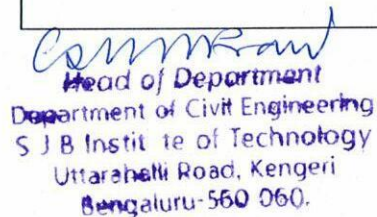 Head of Department
Department of Civil Engineering
S J B Instit te of Technology
Uttarahalli Road, Kengeri
Bengaluru-560 060.